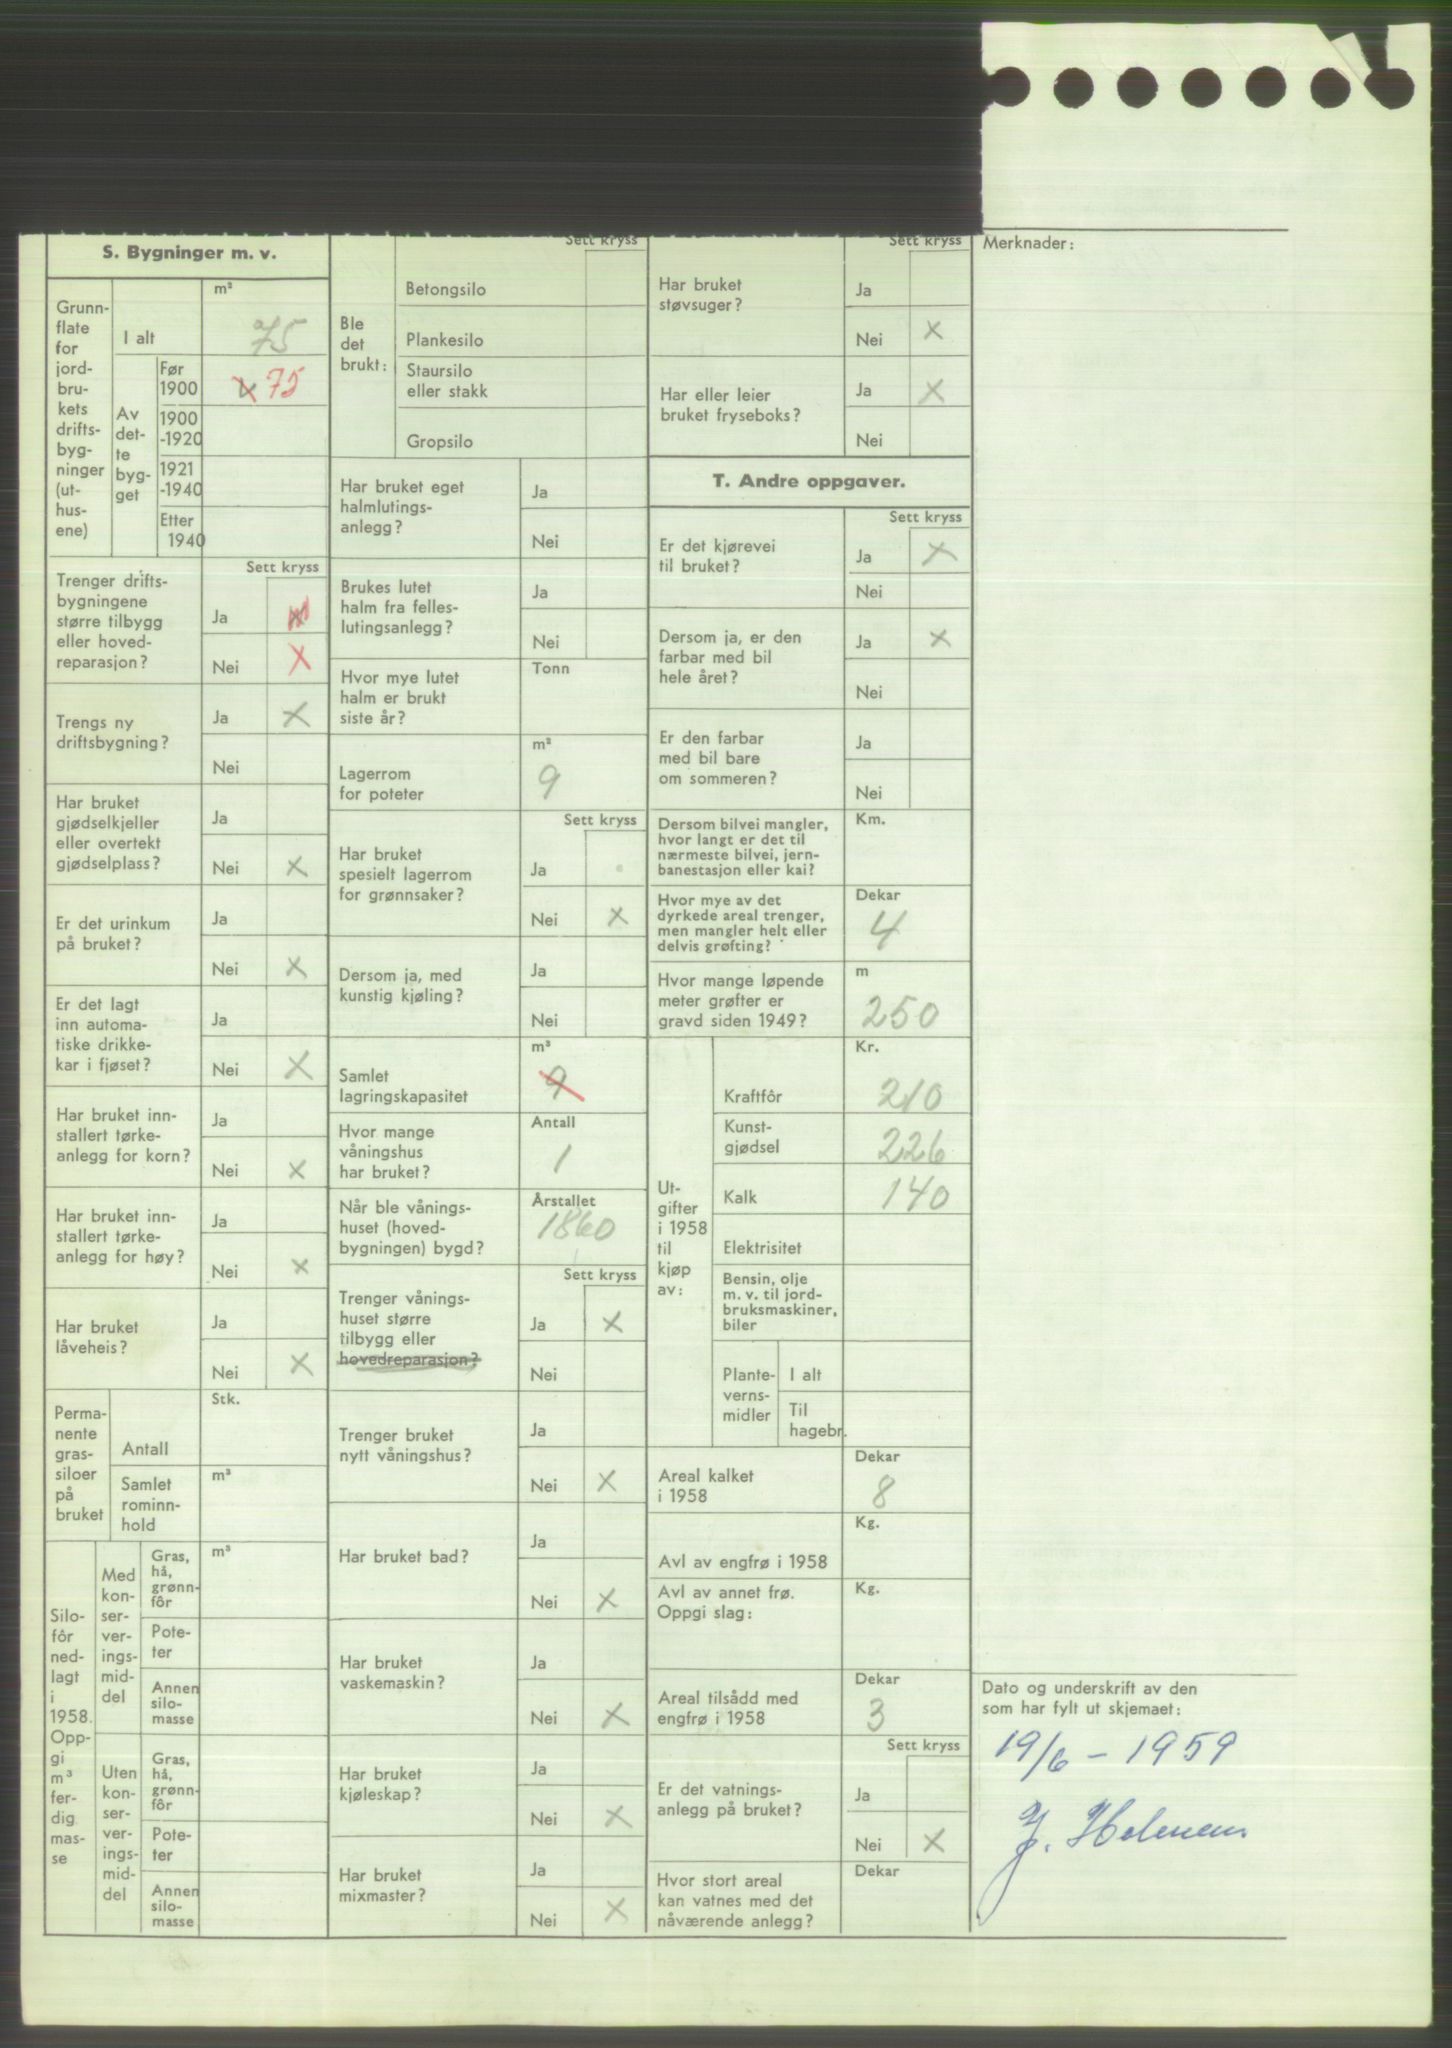 S. Bygninger m. v.
Grunn-
flate
for
jord-
bru-
kets
drifts-
byg-
ninger
(ut-
hus-
ene)
m²
I alt
75
Av
det-
te
byg-
get
Før
1900
75
1900
-1920
1921
-1940
Etter
1940
Sett kryss
Trenger drifts-
bygningene
større tilbygg
eller hoved-
reparasjon?
Ja
Nei X
Trengs ny
driftsbygning?
Ja X
Nei
Har bruket
gjødselkjeller
eller overtekt
gjødselplass?
Ja
Nei X
Er det urinkum
på bruket?
Ja
Nei X
Er det lagt
inn automa-
tiske drikke-
kar i fjøset?
Ja
Nei X
Har bruket inn-
stallert tørke-
anlegg for korn?
Ja
Nei X
Har bruket inn-
stallert tørke-
anlegg for høy?
Ja
Nei X
Har bruket
låveheis?
Ja
Nei X
Perma-
nente
gras-
siloer
på
bruket
Stk.
Antall
m³
Samlet
rominn-
hold
Silo-
fôr
ned-
lagt
i
1958.
Opp-
gi
m³
fer-
dig
mas-
se
Med
kon-
ser-
ver-
ings-
mid-
del
m³
Gras,
hå,
grønn-
fôr
Pote-
ter
Annen
silo-
masse
Uten
kon-
ser-
ver-
ings-
mid-
del
Gras,
hå,
grønn-
fôr
Pote-
ter
Annen
silo-
masse
Ble
det
brukt:
Sett kryss
Betongsilo
Plankesilo
Staursilo
eller stakk
Gropsilo
Har bruket eget
halmlutings-
anlegg?
Ja
Nei
Brukes lutet
halm fra felles-
lutingsanlegg?
Ja
Nei
Hvor mye lutet
halm er brukt
siste år?
Tonn
Lagerrom
for poteter
m²
9
Sett kryss
Har bruket
spesielt lagerrom
for grønnsaker?
Ja
Nei X
Dersom ja, med
kunstig kjøling?
Ja
Nei
Samlet
lagringskapasitet
m³
9
Hvor mange
våningshus
har bruket?
Antall
1
Når ble vånings-
huset (hoved-
bygningen) bygd?
Årstallet
1860
Sett kryss
Trenger vånings-
huset større
tilbygg eller
hovedreparasjon?
Ja X
Nei
Trenger bruket
nytt våningshus?
Ja
Nei X
Har bruket bad?
Ja
Nei X
Har bruket
vaskemaskin?
Ja
Nei X
Har bruket
kjøleskap?
Ja
Nei X
Har bruket
mixmaster?
Ja
Nei X
Sett kryss
Har bruket
støvsuger?
Ja
Nei X
Har eller leier
bruket fryseboks?
Ja X
Nei
T. Andre oppgaver.
Sett kryss
Er det kjørevei
til bruket?
Ja X
Nei
Dersom ja, er den
farbar med bil
hele året?
Ja X
Nei
Er den farbar
med bil bare
om sommeren?
Ja
Nei
Dersom bilvei mangler,
hvor langt er det til
nærmeste bilvei, jern-
banestasjon eller kai?
Km.
Hvor mye av det
dyrkede areal trenger,
men mangler helt eller
delvis grøfting?
Dekar
4
Hvor mange løpende
meter grøfter er
gravd siden 1949?
m
250
Ut-
gifter
i 1958
til
kjøp
av:
Kr.
Kraftfôr 210
Kunst-
gjødsel 226
Kalk 140
Elektrisitet
Bensin, olje
m. v. til jord-
bruksmaskiner,
biler
Plante-
verns-
midler
I alt
Til
hagebr.
Areal kalket
i 1958
Dekar
8
Avl av engfrø i 1958
Kg.
Avl av annet frø.
Oppgi slag:
Kg.
Areal tilsådd med
engfrø i 1958
Dekar
3
Sett kryss
Er det vatnings-
anlegg på bruket?
Ja
Nei X
Hvor stort areal
kan vatnes med det
nåværende anlegg?
Dekar
Merknader:
Dato og underskrift av den
som har fylt ut skjemaet:
19/6 - 1959